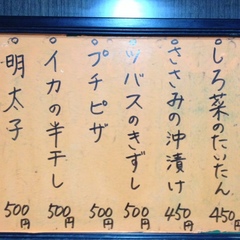 しろ菜のたいたん 450円
ささみの沖漬け 450円
ツバスのきずし 500円
プチピザ 500円
イカの半干し 500円
明太子 500円